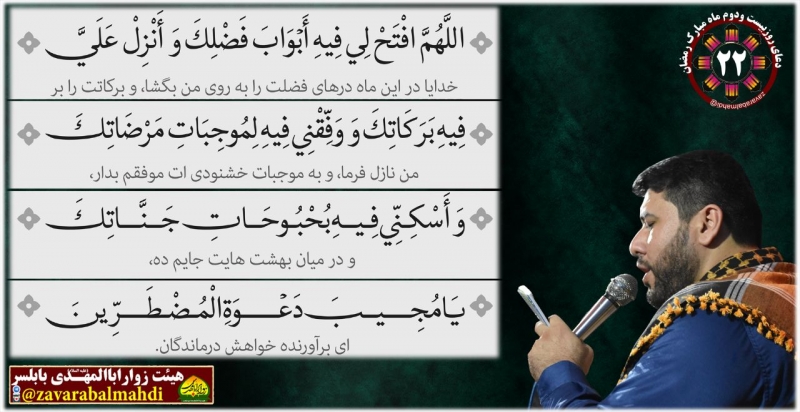 دعای روز بیست و دوم ماه مبارک رمضان
۲۲
@zavarabalmahdi
اللَّهُمَّ افْتَحْ لِي فِيهِ أَبْوَابَ فَضْلِكَ وَ أَنْزِلْ عَلَيَّ
خدایا در این ماه درهای فضلت را به روی من بگشا، و برکاتت را بر
فِيهِ بَرَكَاتِكَ وَ وَفِّقْنِي فِيهِ لِمُوجِبَاتِ مَرْضَاتِكَ
من نازل فرما، و به موجبات خشنودی ات موفقم بدار،
وَ أَسْكِنِّي فِيهِ بُحْبُوحَاتِ جَنَّاتِكَ
و در میان بهشت هایت جایم ده،
يَا مُجِيبَ دَعْوَةِ الْمُضْطَرِّينَ
ای برآورنده خواهش درماندگان.
هیئت زوار اباالمهدی بابلسر
@zavarabalmahdi